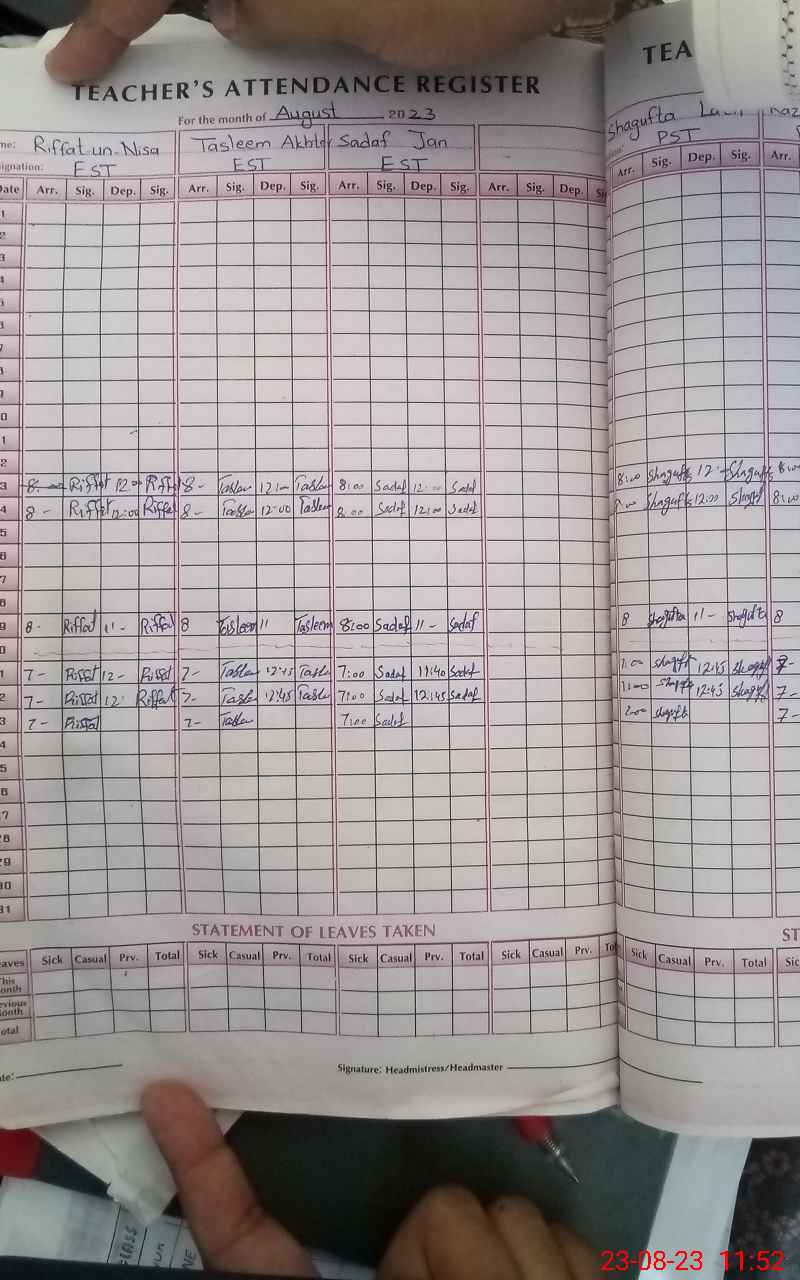 TEACHER'S ATTENDANCE REGISTER
TEA
For the month of August 2023
me: Riffat-un-Nisa Tasleem Akhter Sadaf Jan
Shagufta
signation: EST EST EST
PST
Date Arr. Sig. Dep. Sig. Arr. Sig. Dep. Sig. Arr. Sig. Dep. Sig. Arr. Sig. Dep.
Arr. Sig. Dep. Sig. Arr.
1
2
3
4
5
6
7
8
9
0
1
2
3 8- Riffat 12- Riffat 8- Taslem 12:- Taslem 8:00 Sadaf 12:00 Sadaf 8:00 Shagufta 12- Shagufta 8:00
4 8- Riffat 12:00 Riffat 8- Taslem 12:00 Taslem 8:00 Sadaf 12:00 Sadaf Shagufta 12:00 8:00
5
6
7
8
9 8- Riffat 11- Riffat 8 Tasleem 11 Tasleem 8:00 Sadaf 11- Sadaf 8 Shagufta 11- Shagufta 8
0
1 7- Riffat 12- Riffat 7- Taslem 12:45 Taslem 7:00 Sadaf 11:40 Sadaf 7:00 12:45 7-
2 7- Riffat 12 Riffat 7- Taslem 12:45 Taslem 7:00 Sadaf 12:45 Sadaf 12:45 7-
3 7- Riffat 7- Taslem 7:00 Sadaf 7-
4
5
6
7
8
9
30
31
STATEMENT OF LEAVES TAKEN
ST
eaves Sick Casual Prv. Total Sick Casual Prv. Total Sick Casual Prv. Total Sick Casual Prv.
Sick Casual Prv. Total Sick
This
onth
evious
onth
otal
ate:
Signature: Headmistress/Headmaster
23-08-23 11:52